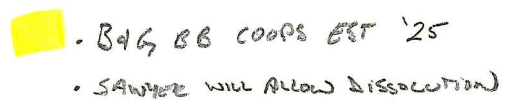 • B&G, BB COOPS EST '25
• SAWYER WILL ALLOW DISSOLUTION